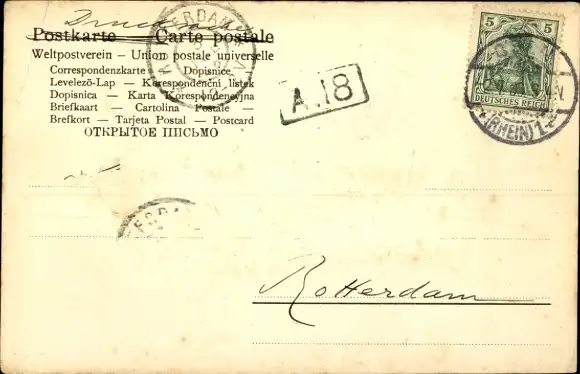 Drucksache
Postkarte — Carte postale
Weltpostverein – Union postale universelle
Correspondenzkarte — Dopisnice
Levelező-Lap — Korespondenční lístek
Dopisnica — Karta Korespondencyjna
Briefkaart — Cartolina Postale —
Brefkort — Tarjeta Postal — Postcard
ОТКРЫТОЕ ПИСЬМО
A.18
5 5
DEUTSCHES REICH
(RHEIN) 1
Rotterdam